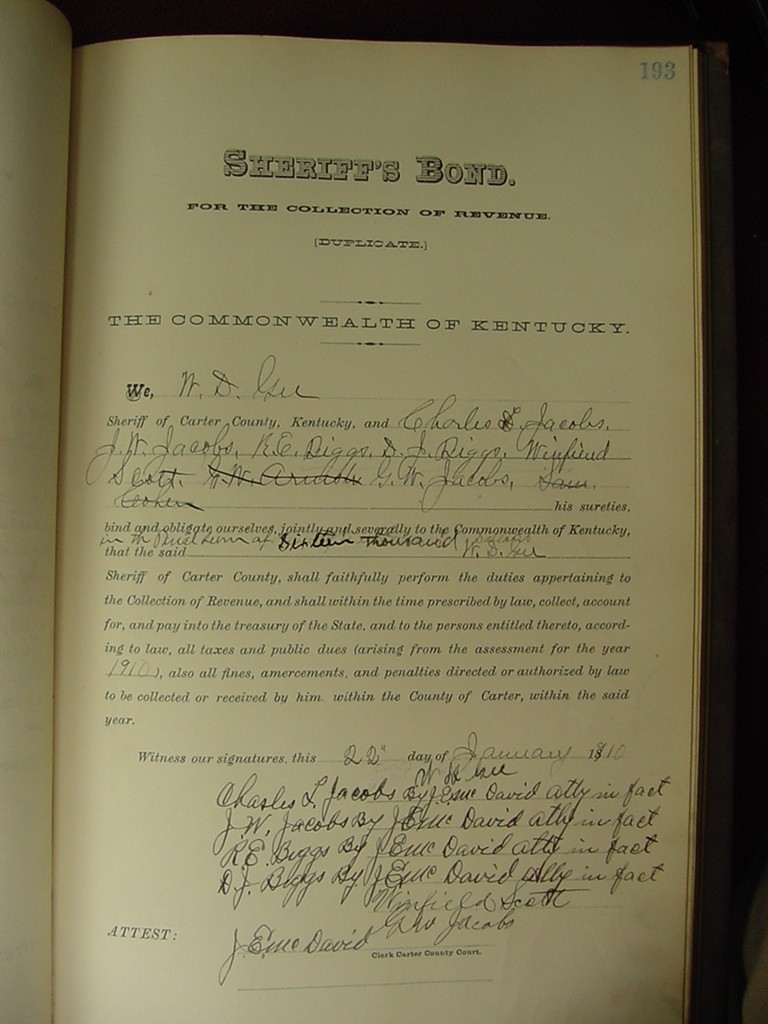 193
SHERIFF'S BOND.
FOR THE COLLECTION OF REVENUE.
[DUPLICATE.]
THE COMMONWEALTH OF KENTUCKY.
We, W. D. Gee
Sheriff of Carter County, Kentucky, and Charles L. Jacobs,
J. W. Jacobs, R. E. Biggs, D. J. Biggs, Winfield
Scott. G. W. Jacobs, Sam.
his sureties,
bind and obligate ourselves, jointly and severally to the Commonwealth of Kentucky,
in the Penal sum of Sixteen thousand Dollars
that the said W. D. Gee
Sheriff of Carter County, shall faithfully perform the duties appertaining to
the Collection of Revenue, and shall within the time prescribed by law, collect, account
for, and pay into the treasury of the State, and to the persons entitled thereto, accord-
ing to law, all taxes and public dues (arising from the assessment for the year
1910), also all fines, amercements, and penalties directed or authorized by law
to be collected or received by him within the County of Carter, within the said
year.
Witness our signatures, this 22" day of January 1910
W D Gee
Charles L. Jacobs By J E Mc David atty in fact
J. W. Jacobs By J E Mc David atty in fact
R. E. Biggs By J E Mc David atty in fact
D. J. Biggs By J E Mc David atty in fact
Winfield Scott
G W Jacobs
ATTEST: J. E. Mc David
Clerk Carter County Court.